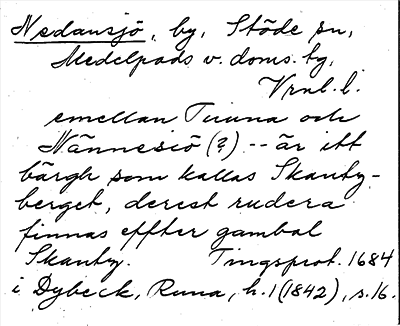 Nedansjö, by, Stöde sn,
Medelpads v. doms. hg,
Vrnl. l.
emellan Tuuna och
Männesiö (?) -- är itt
bärgh som kallas Skanty-
berget, derest rudera
finnas effter gambal
Skanty. Tingsprot. 1684
i Dybeck, Runa, h. 1 (1842), s. 16.